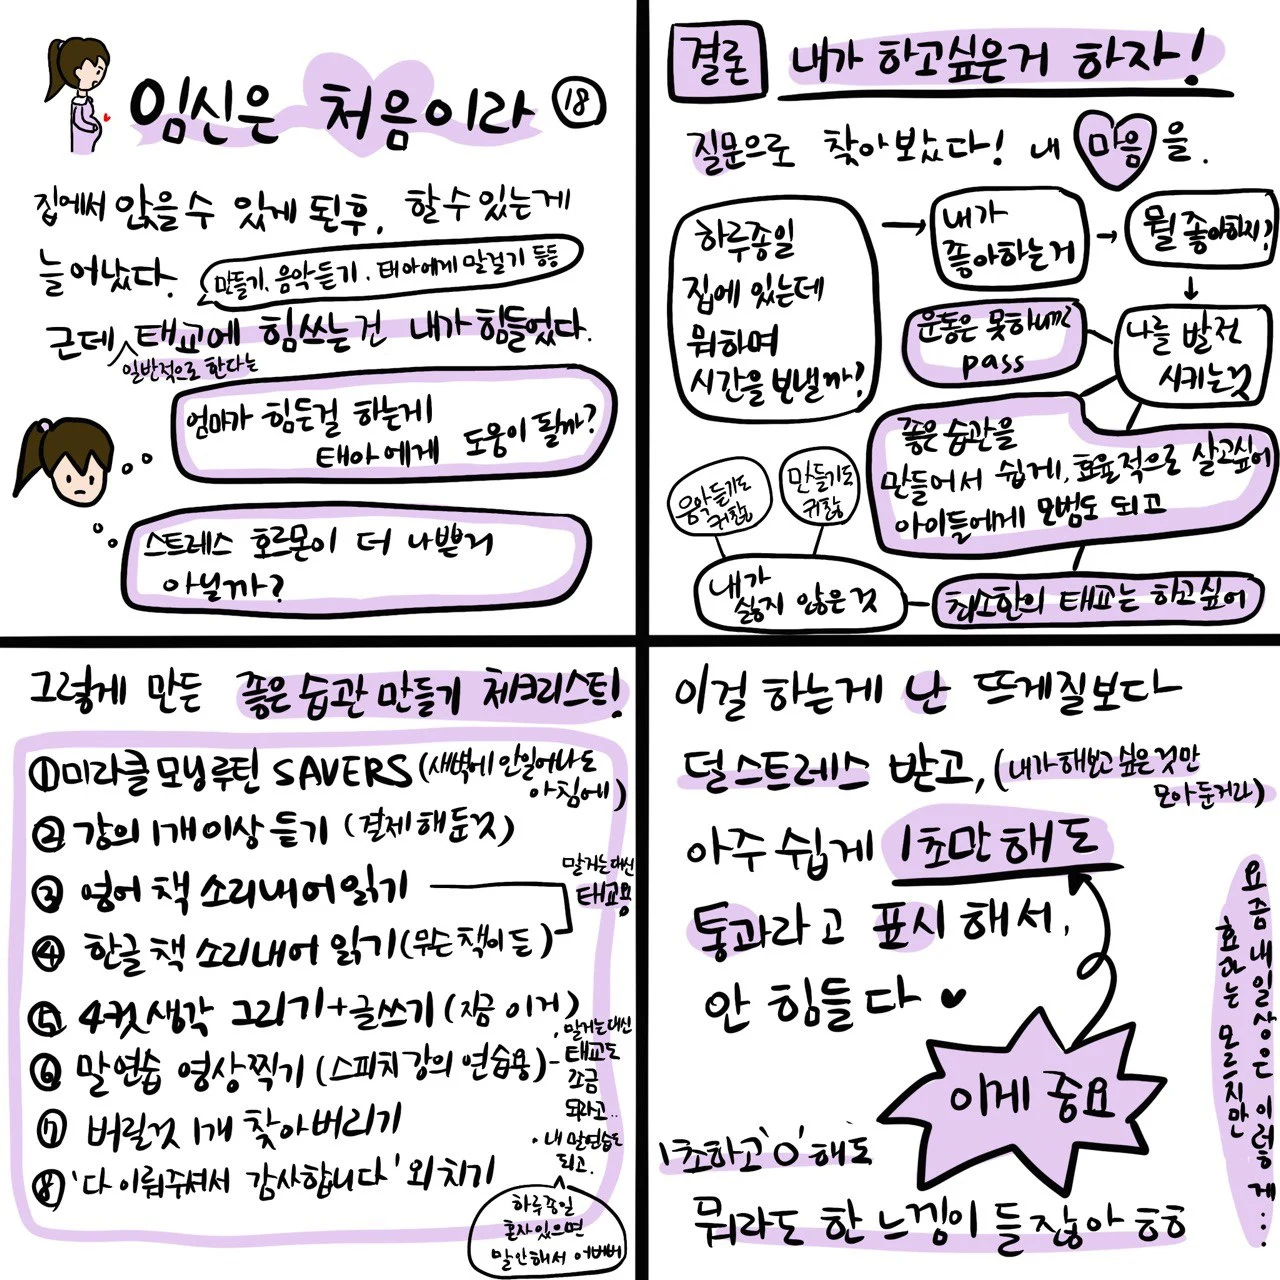 임신은 처음이라 18
집에서 앉을 수 있게 된 후, 할 수 있는게
늘어났다.
만들기, 음악듣기, 태아에게 말걸기 등등
근데 태교에 힘쓰는건 내가 힘들었다.
일반적으로 한다는
엄마가 힘든걸 하는게
태아에게 도움이 될까?
스트레스 호르몬이 더 나쁜거
아닐까?
결론 내가 하고싶은거 하자!
질문으로 찾아보았다! 내 마음을.
하루종일
집에 있는데
뭐하며
시간을 보낼까?
내가
좋아하는거
뭘 좋아하지?
나를 발전
시키는것
운동은 못하니
pass
좋은 습관을
만들어서 쉽게, 효율적으로 살고싶어
아이들에게 모범도 되고
최소한의 태교는 하고싶어
내가
싫지 않은것
음악듣기도
귀찮
만들기도
귀찮
그렇게 만든 좋은 습관 만들기 체크리스트!
① 미라클 모닝 루틴 SAVERS (새벽에 안일어나도
아침에)
② 강의 1개 이상 듣기 (결제해둔것)
③ 영어 책 소리내어 읽기
④ 한글 책 소리내어 읽기 (무슨 책이든)
말거는대신
태교용
⑤ 4컷생각 그리기+글쓰기 (지금 이거)
⑥ 말연습 영상찍기 (스피치 강의 연습용)
말거는대신
태교도
조금
되라고..
· 내 말연습도
되고.
⑦ 버릴것 1개 찾아버리기
⑧ '다 이뤄주셔서 감사합니다' 외치기
하루종일
혼자있으면
말안해서 어버버
이걸 하는게 난 뜨게질보다
덜 스트레스 받고, (내가 해보고 싶은것만
모아둔거라)
아주 쉽게 1초만 해도
통과라고 표시해서,
안 힘들다 ♥
이게 중요
1초하고 'O' 해도
뭐라도 한 느낌이 들잖아 ㅎㅎ
요즘 내일상은 이렇게...
효과는 모르지만